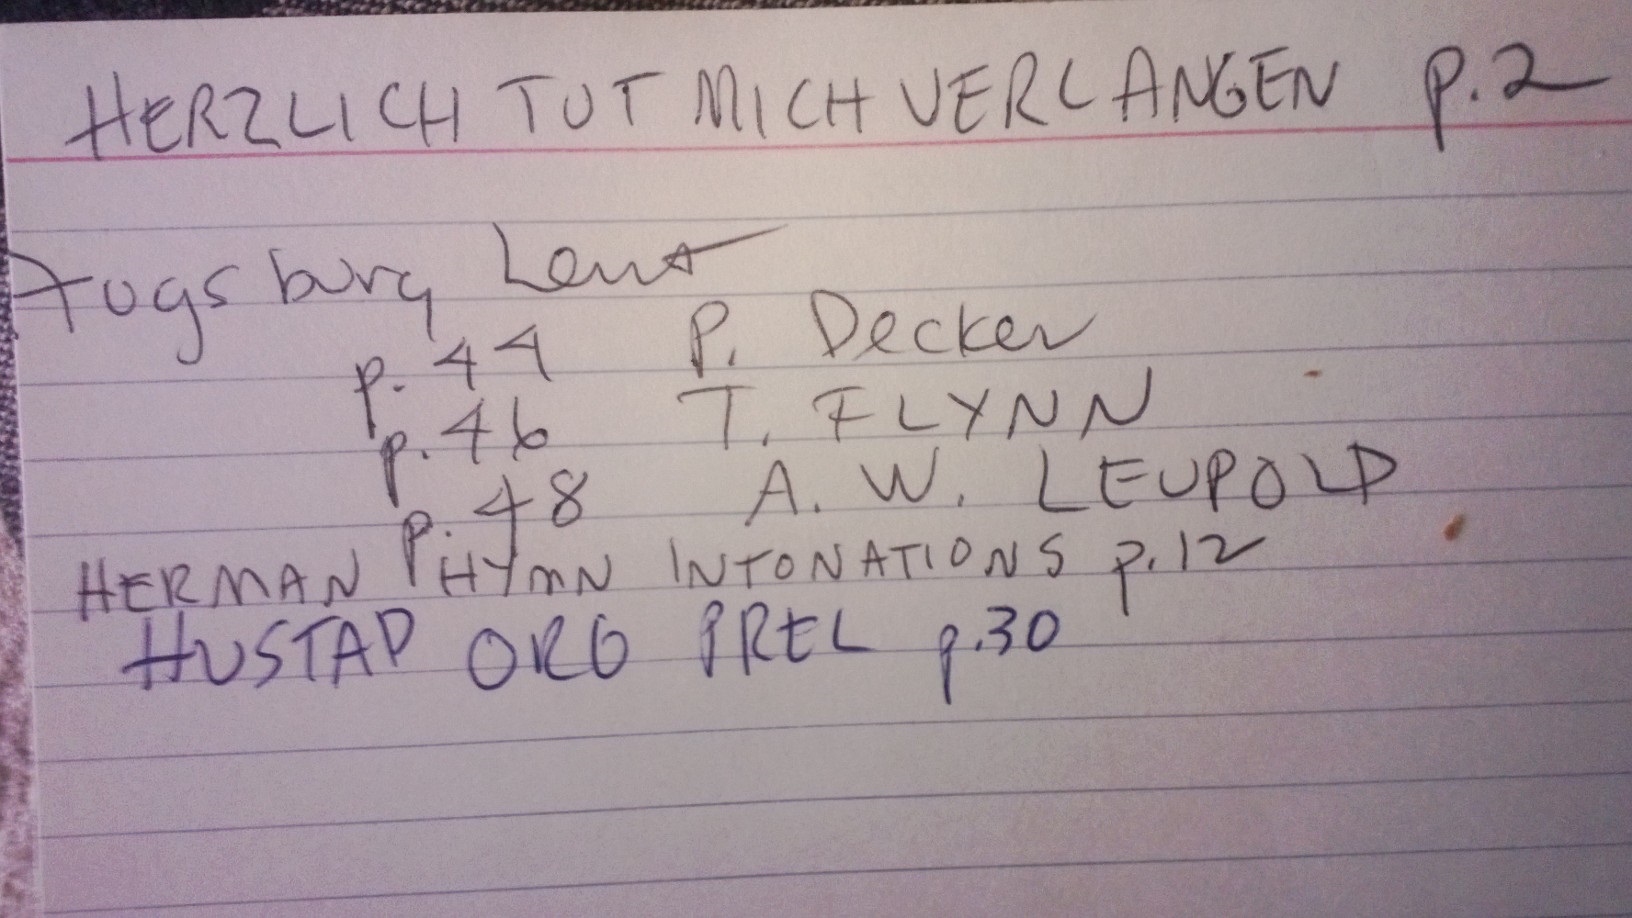 HERZLICH TUT MICH VERLANGEN p.2
Augsburg Lent
p. 44 P. Decker
p. 46 T. FLYNN
p. 48 A. W. LEUPOLD
HERMAN HYMN INTONATIONS p.12
HUSTAD ORG PREL p.30